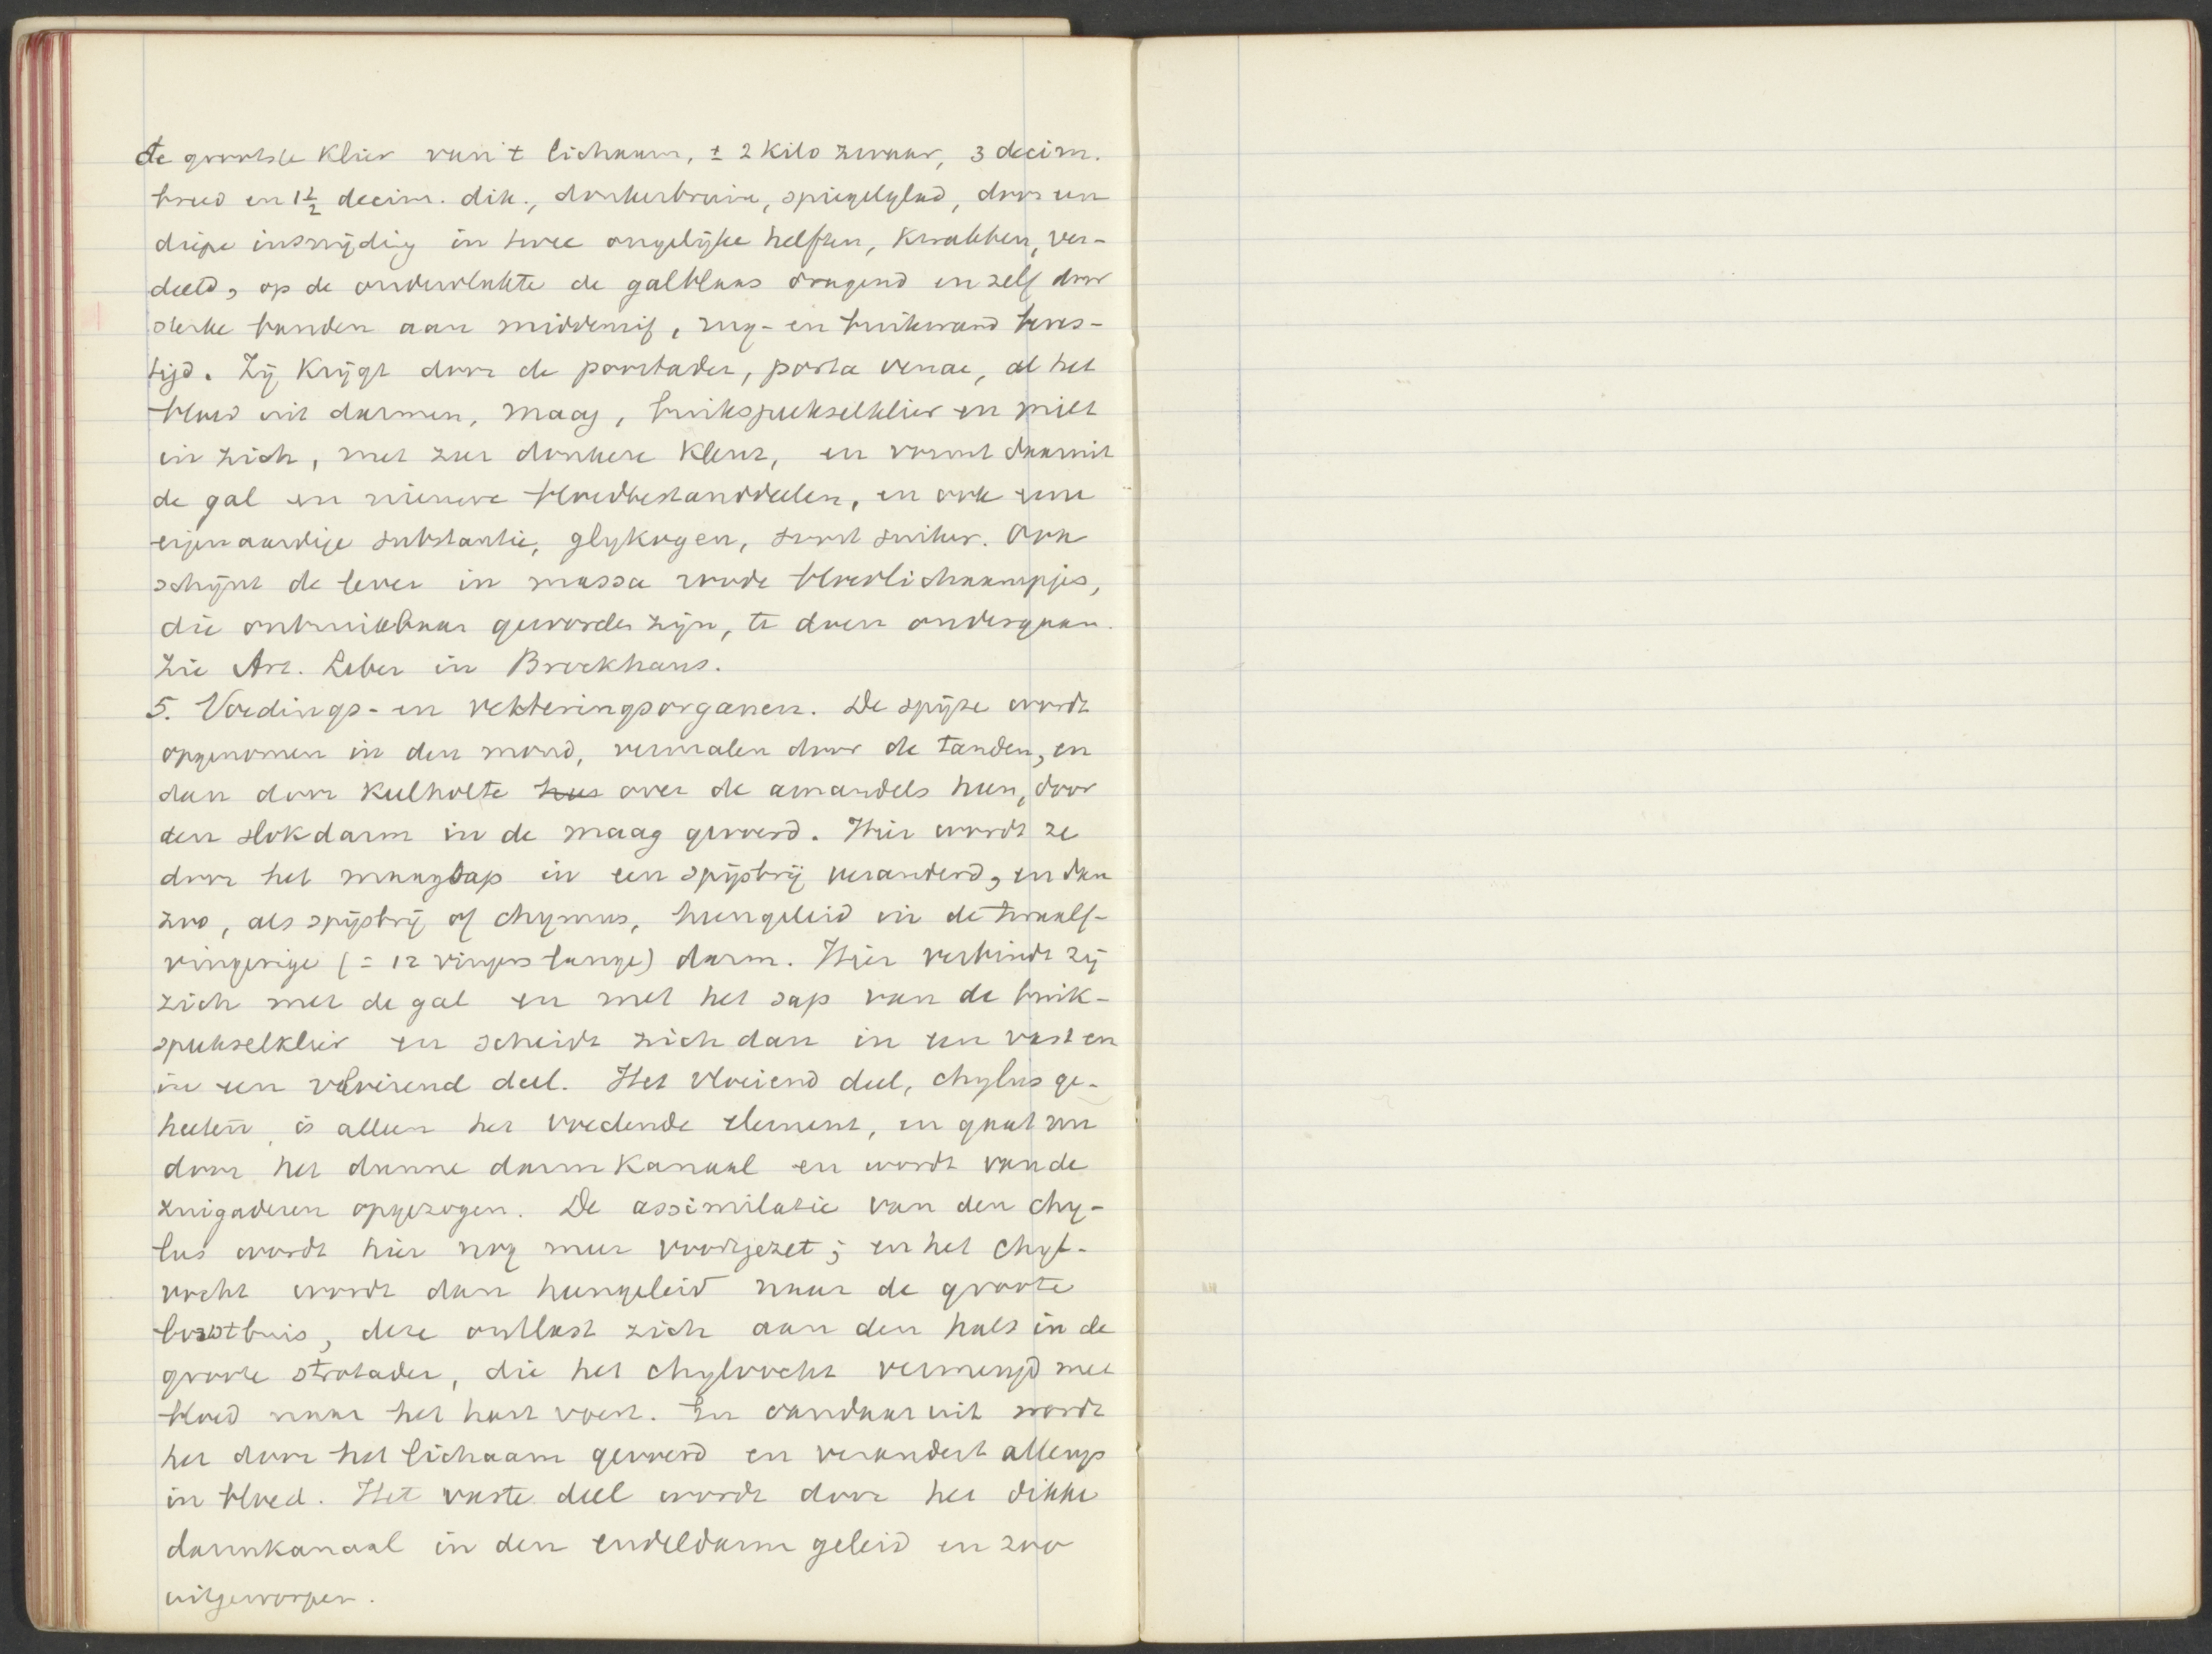 de grootste klier van 't lichaam, ± 2 kilo zwaar, 3 decim.
breed en 1½ decim. dik., donkerbruin, spiegelglad, door een
diepe insnijdig in twee ongelijke helften, kwabben, ver-
deeld, op de ondervlakte de galblaas dragend en zelf door
sterke banden aan middenrif, rug- en buikwand beves-
tigd. Zij krijgt door de poortader, porta venae, al het
bloed uit darmen, maag, buikspeekselklier en milt
in zich, met zeer donkere kleur, en vormt daaruit
de gal en nieuwe bloedbestanddeelen, en ook eene
eigenaardige substantie, glykogen, soort suiker. Ook
schijnt de lever in massa roode bloedlichaampjes,
die onbruikbaar geworden zijn, te doen ondergaan.
Zie Art. Leber in Brockhaus.
5. Voedings- en verteringsorganen. De spijze wordt
opgenomen in den mond, vermalen door de tanden, en
dan door keelholte over de amandels heen, door
den slokdarm in de maag gevoerd. Hier wordt ze
door het maagsap in een spijsbrij veranderd, en dan
zoo, als spijsbrij of chymus, heengeleid in de twaalf-
vingerige (= 12 vingers lange) darm. Hier verbindt zij
zich met de gal en met het sap van de buik-
speekselklier en scheidt zich dan in een vast en
in een vloeiend deel. Het vloeiend deel, chylus ge-
heeten, is alleen het voedende element, en gaat nu
door het dunne darmkanaal en wordt van de
zuigaderen opgezogen. De assimilatie van den chy-
lus wordt hier nog meer voortgezet; en het chyl-
vocht wordt dan heengeleid naar de groote
borstbuis, deze ontlast zich aan den hals in de
groote strotader, die het chylvocht vermengd met
bloed naar het hart voert. En vandaar uit wordt
het door het lichaam gevoerd en verandert allengs
in bloed. Het vaste deel wordt door het dikke
darmkanaal in den endeldarm geleid en zoo
uitgeworpen.